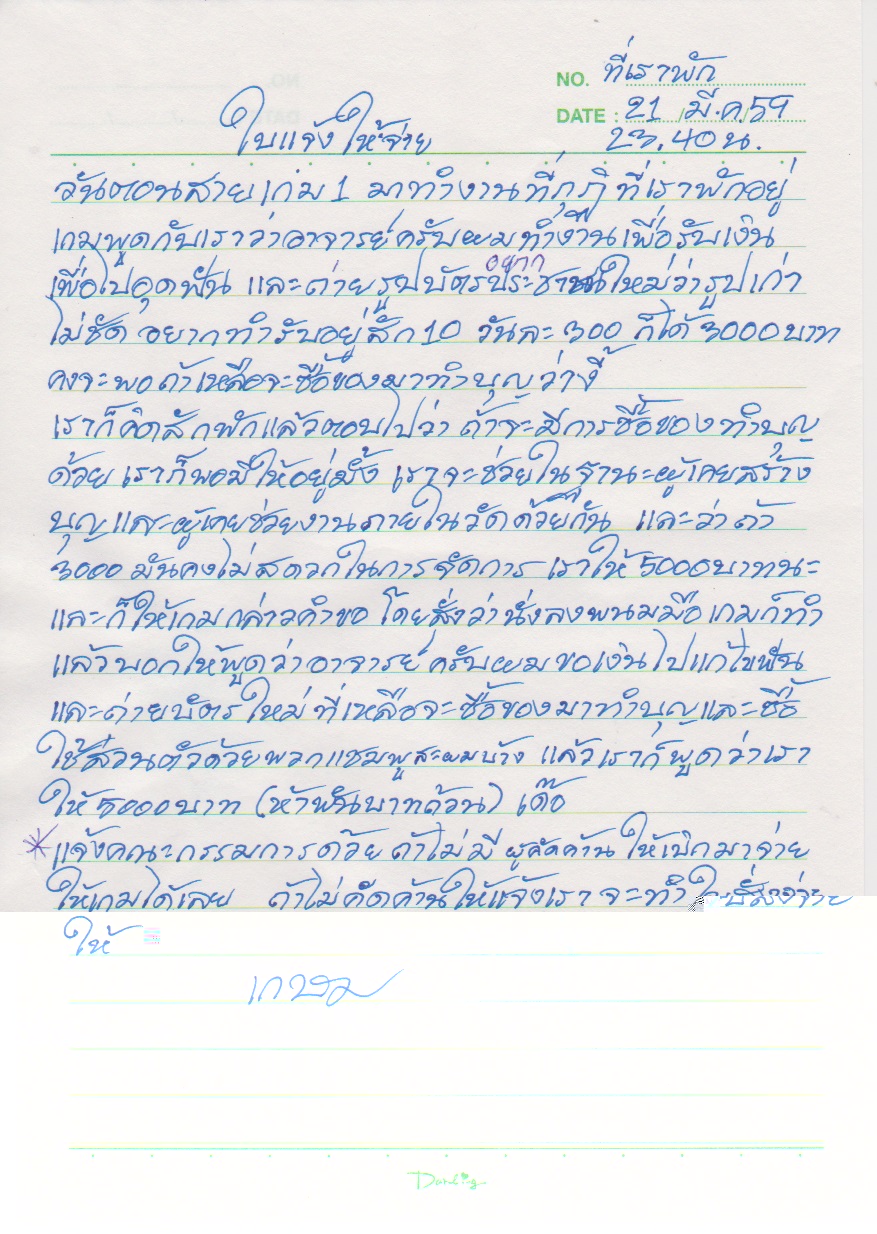 NO. ที่เราพัก
DATE : 21 / มี.ค. / 59
ใบแจ้งให้จ่าย 23.40 น.
วันตอนสาย เกม 1 มาทำงานที่กุฏิที่เราพักอยู่
เกมพูดกับเราว่าอาจารย์ครับผมทำงานเพื่อรับเงิน
อยาก
เพื่อไปอุดฟัน และถ่ายรูปบัตรประชาชนใหม่ว่ารูปเก่า
ไม่ชัด อยากทำรับอยู่สัก 10 วันละ 300 ก็ได้ 3000 บาท
คงจะพอถ้าเหลือจะซื้อของมาทำบุญว่างี้
เราก็คิดสักพักแล้วตอบไปว่า ถ้าจะมีการซื้อของทำบุญ
ด้วย เราก็พอมีให้อยู่มั้ง เราจะช่วยในฐานะผู้เคยสร้าง
บุญและผู้เคยช่วยงานภายในวัดด้วยกัน และว่าถ้า
3000 มันคงไม่สดวกในการจัดการ เราให้ 5000 บาทนะ
และก็ให้เกมกล่าวคำขอ โดยสั่งว่านั่งลงพนมมือ เกมก็ทำ
แล้วบอกให้พูดว่าอาจารย์ครับผมขอเงินไปแก้ไขฟัน
และถ่ายบัตรใหม่ ที่เหลือจะซื้อของมาทำบุญและซื้อ
ใช้ส่วนตัวด้วยพวกแชมพูสะผมบ้าง แล้วเราก็พูดว่าเรา
ให้ 5000 บาท (ห้าพันบาทถ้วน) เด๊อ
* แจ้งคณะกรรมการด้วย ถ้าไม่มีผู้คัดค้าน ให้เบิกมาจ่าย
ให้เกมได้เลย ถ้าไม่คัดค้านให้แจ้งเราจะทำใบสั่งจ่าย
ให้
เกษม
Darling